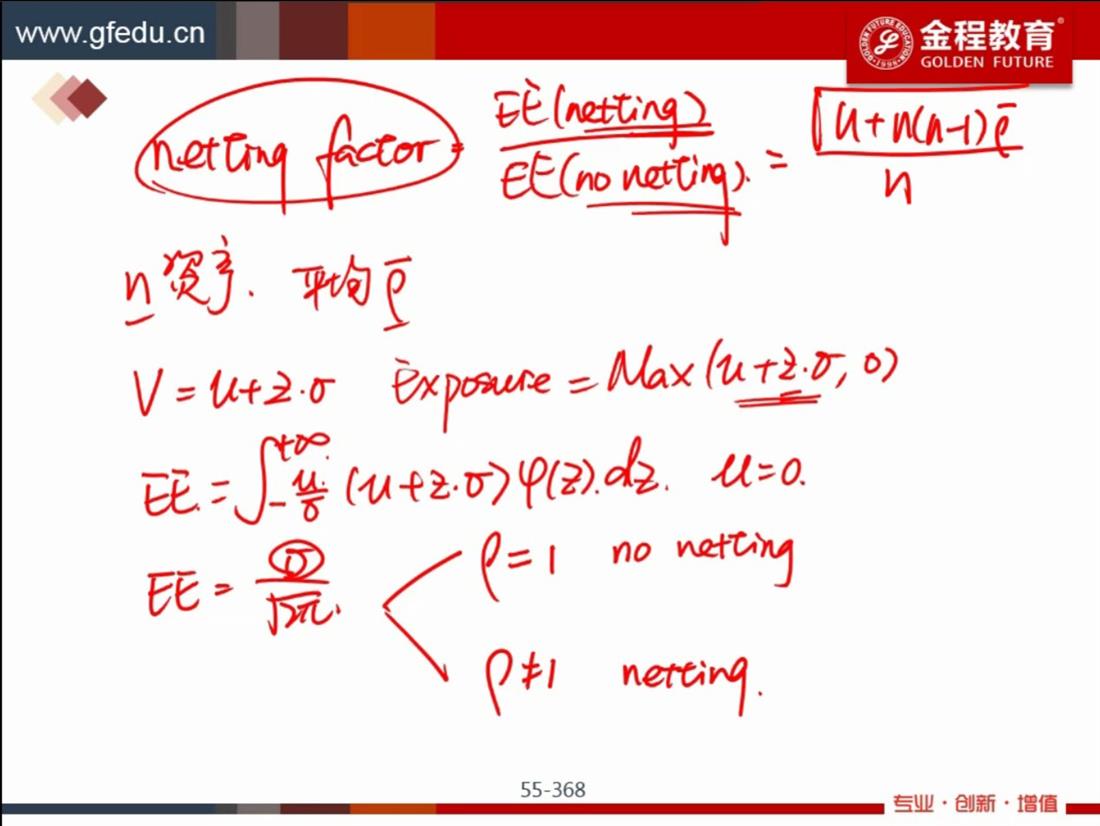 www.gfedu.cn
金程教育®
GOLDEN FUTURE
GOLDEN FUTURE EDUCATION
·1998·
netting factor = EE(netting) / EE(no netting). = √u+n(n-1)ρ̄ / n
n 资产. 平均 ρ̄
V = u+z·σ Exposure = Max(u+z·σ, 0)
EE. = ∫_{-u/σ}^{+∞} (u+z·σ) φ(z).dz. u=0.
EE = σ / √2π. ρ=1 no netting
ρ≠1 netting.
55-368
专业·创新·增值